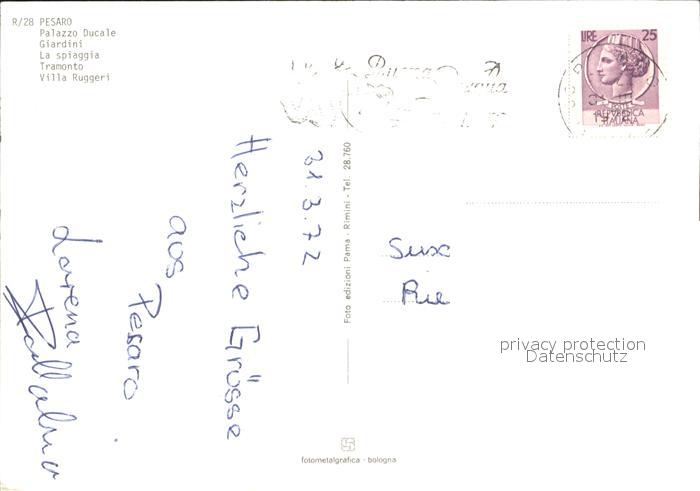 R/28 PESARO
Palazzo Ducale
Giardini
La spiaggia
Tramonto
Villa Ruggeri
LIRE 25
REPUBBLICA
ITALIANA
Buona
31.3.72
Herzliche Grüsse
aus
Pesaro
Lorena
Foto edizioni Pama - Rimini - Tel. 28.760
Susa
Rie
privacy protection
Datenschutz
fotometalgrafica - bologna